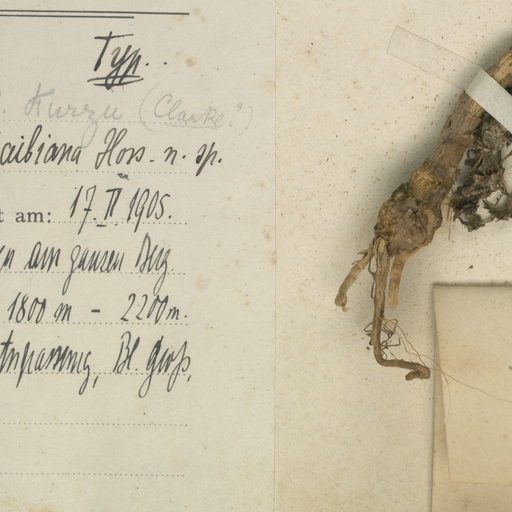 Typ.
Kurzii (Clarke?)
aibiana Hoss. n. sp.
t am: 17. II 1905.
en am ganzen Berg.
1800 m - 2200 m.
Bl. groß,